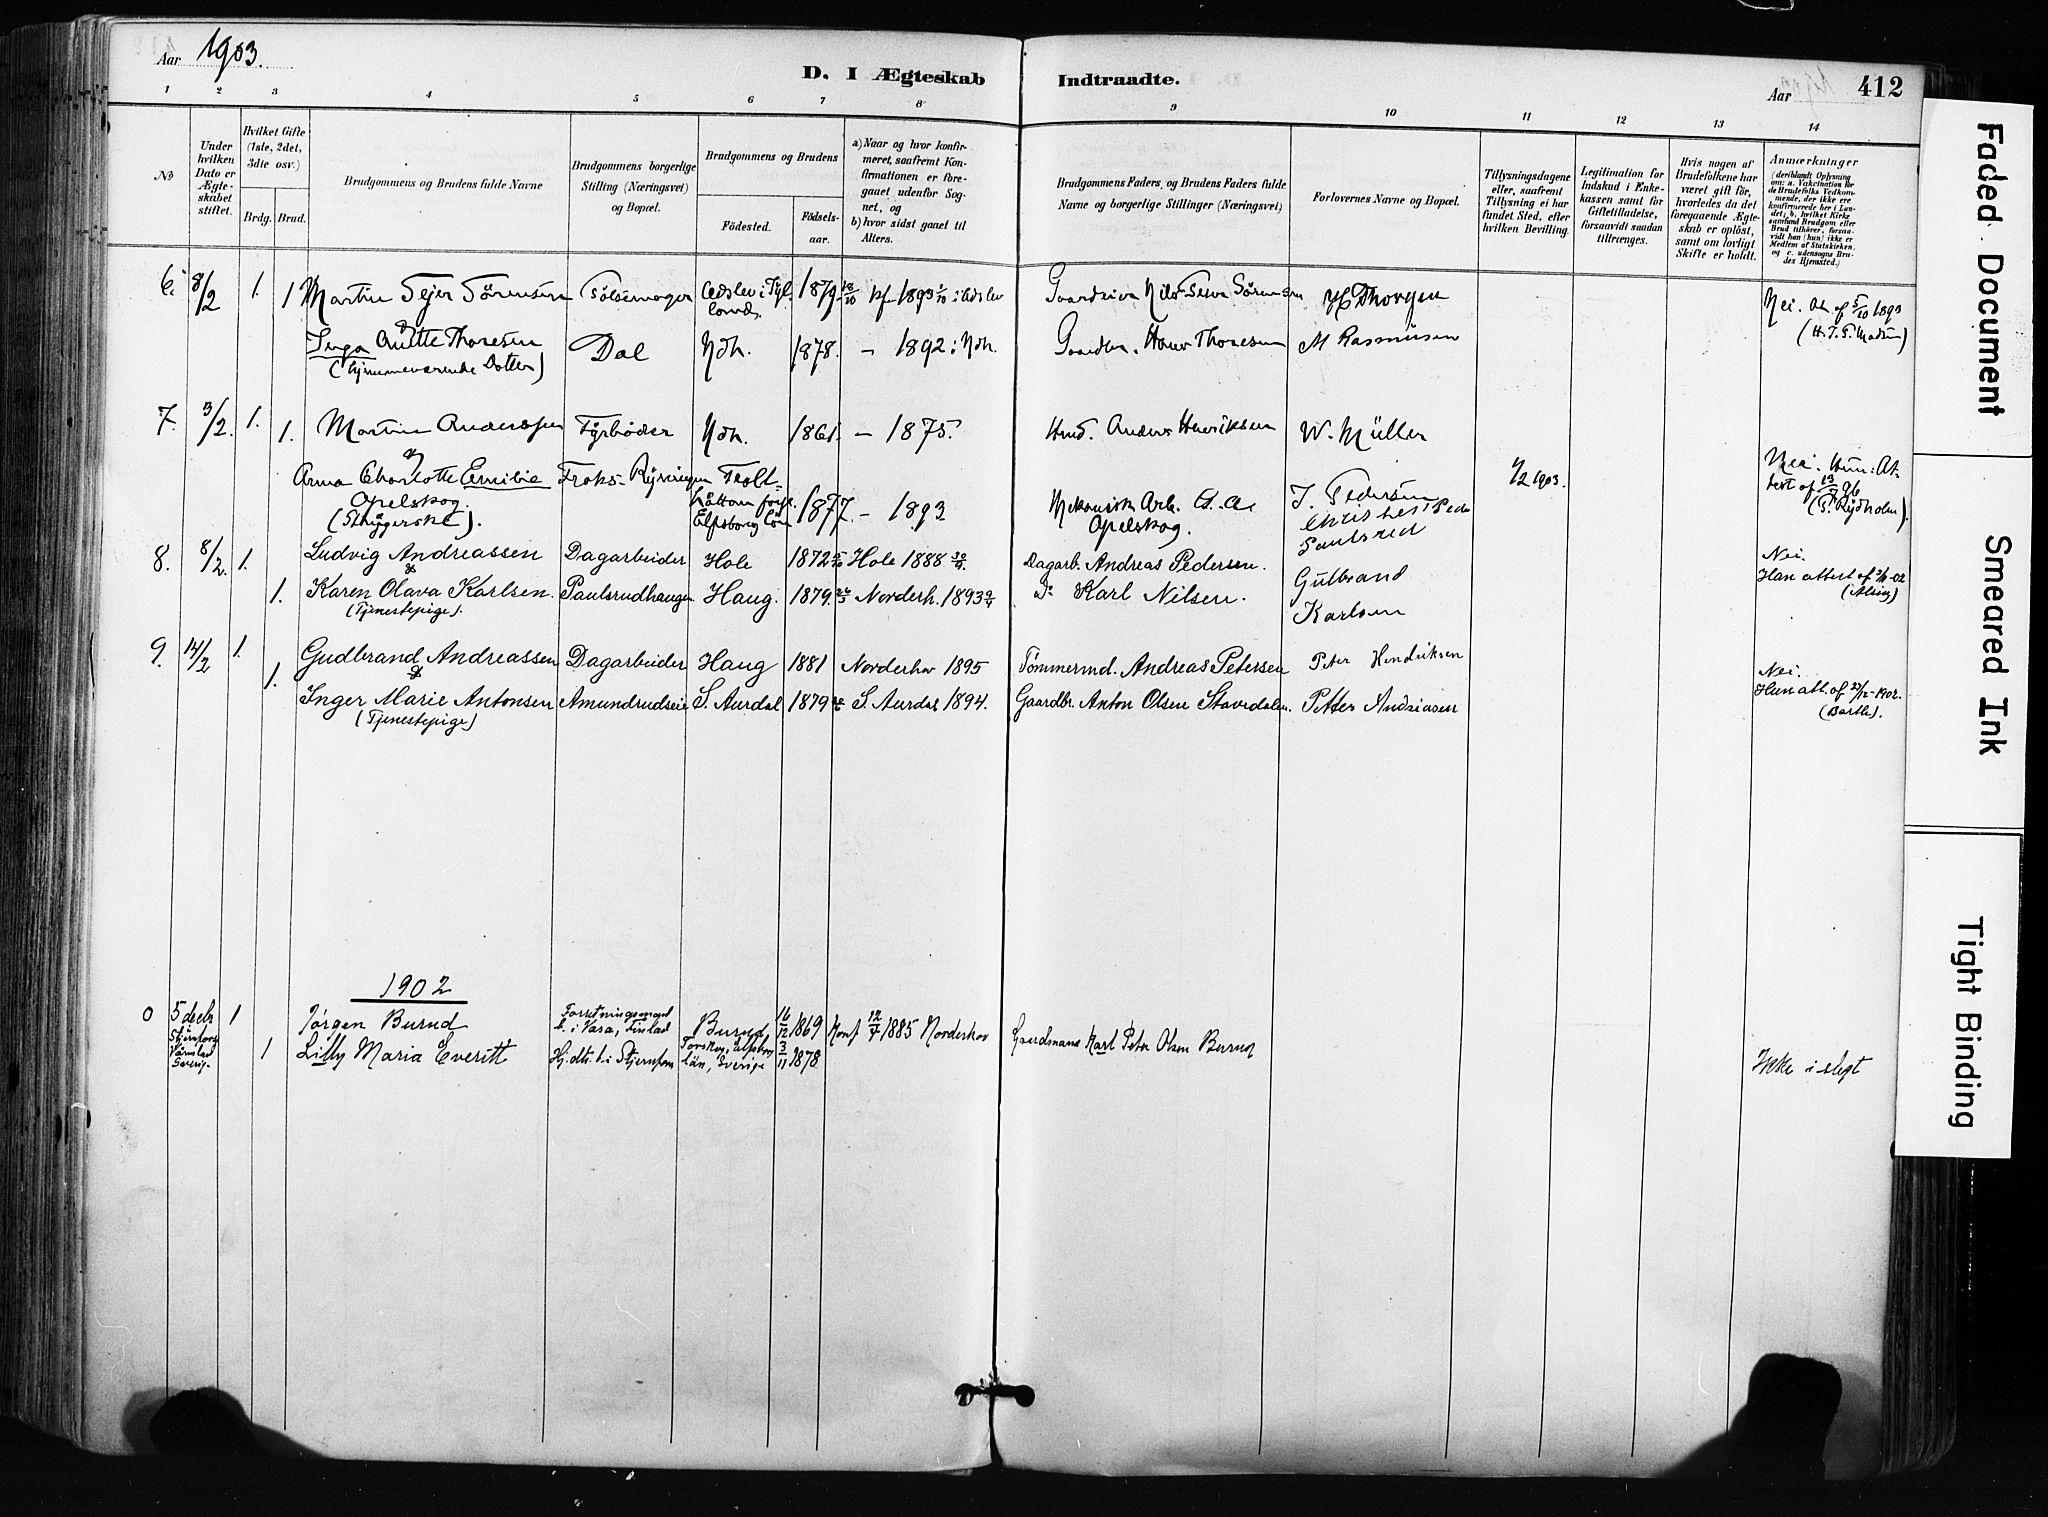 Aar 1903.
D. I Ægteskab Indtraadte.
Aar 412
1 2 3 4 5 6 7 8 9 10 11 12 13 14
No
Under hvilken Dato er Ægteskabet stiftet.
Hvilket Gifte (1ste, 2det, 3die osv.)
Brdg. Brud.
Brudgommens og Brudens fulde Navne
Brudgommens borgerlige Stilling (Næringsvei) og Bopæl.
Brudgommens og Brudens
Fødested. Fødselsaar.
a) Naar og hvor konfirmeret, saafremt Konfirmationen er foregaaet udenfor Sognet, og
b) hvor sidst gaaet til Alters.
Brudgommens Faders, og Brudens Faders fulde Navne og borgerlige Stillinger (Næringsvei)
Forlovernes Navne og Bopæl.
Tillysningsdagene eller, saafremt Tillysning ei har fundet Sted, efter hvilken Bevilling.
Legitimation for Indskud i Enkekassen samt for Giftetilladelse, forsaavidt saadan tiltrænges.
Hvis nogen af Brudefolkene har været gift før, hvorledes da det foregaaende Ægteskab er opløst, samt om lovligt Skifte er holdt.
Anmærkninger
(deriblandt Oplysning om: a. Vakcination for de Brudefolks Vedkommende, der ikke ere konfirmerede her i Landet; b. hvilket Kirkesamfund Brudgom eller Brud tilhører, forsaavidt han (hun) ikke er Medlem af Statskirken, og c. udensogns Brudes Hjemsted.)
6. 8/2 1. Martin Tejer Sörensen 1879 18/10 kf. 1893 1/10
1 Inga Anette Thoresen Dal Ndh. 1878. — 1892 i Ndh. Hans Thoresen M Rasmussen
(hjemmeværende Datter)
Nei. At. af 5/10 1893
7. 3/2. 1. Martin Anderssen Fyrbøder Ndh. 1861. — 1875. Anders Henriksen W. Müller
1. Anna Charlotte Emilie Opelskog
(Strÿgerske).
1877. — 1893 Mekanisk Arb. Opelskog. J. Pedersen
1/2 1903.
Nei. Hun: Attest af 13/3 96
8. 8/2. 1. Ludvig Andreassen Dagarbeider Hole 1872 Hole 1888 Dagarb. Andreas Pedersen. Gulbrand
& 1. Karen Olava Karlsen. Paulsrudhaugen Haug. 1879. Norderh. 1893 Do Karl Nilsen. Karlsen
(Tjenestepige).
Nei.
Han attest af
9. 14/2 1. Gudbrand Andreassen Dagarbeider Haug 1881 Norderhov 1895 Tömmermd. Andreas Petersen Peter Hendriksen
& 1. Inger Marie Antonsen Amundrudseie S. Aurdal 1879 S. Aurdal 1894. Gaardbr. Anton Olsen Stavedalen. Petter Andriasen
(Tjenestepige)
Nei.
Hun att. af 27/12-1902.
(Barth).
1902
0 5 decbr 1 Jørgen Burud Forretningsmand b. i Vasa, Finland Burud 16/12 1869 Konf 12/4 1885 Norderhov Gaardmand Karl Peter Olsen Burud
1 Lilly Maria Everitt län, Sverige 3/11 1878
Ikke i slegt
Faded Document
Smeared Ink
Tight Binding